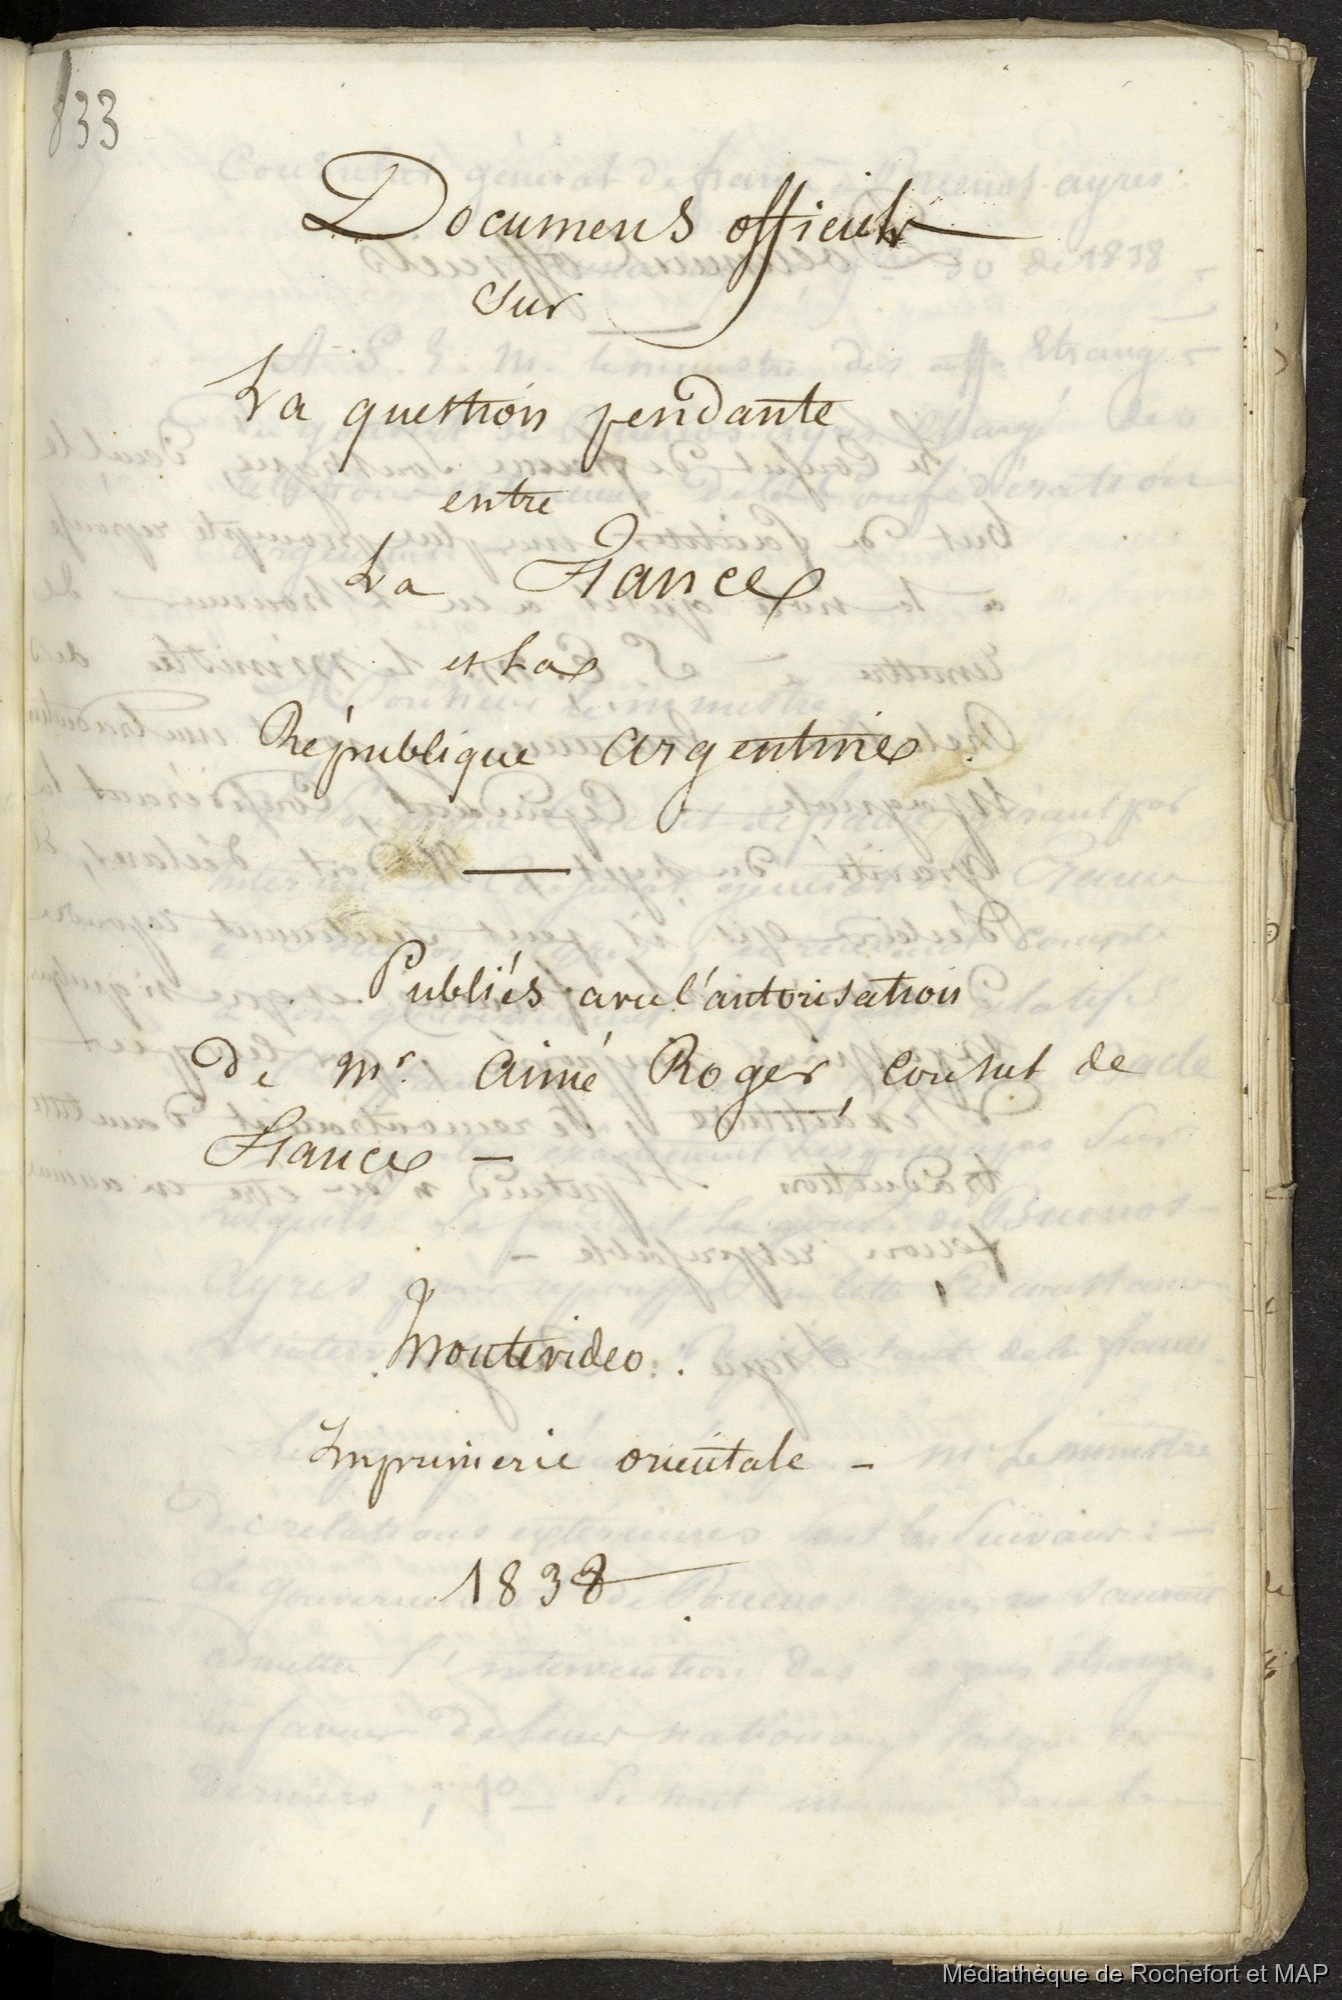 833
Documens officiels
sur
La question pendante
entre
La France
et la
République argentine.
Publiés avec l'autorisation
de Mr. Aimé Roger consul de
France —
Montevideo.
Imprimerie orientale —
1838
Médiathèque de Rochefort et MAP